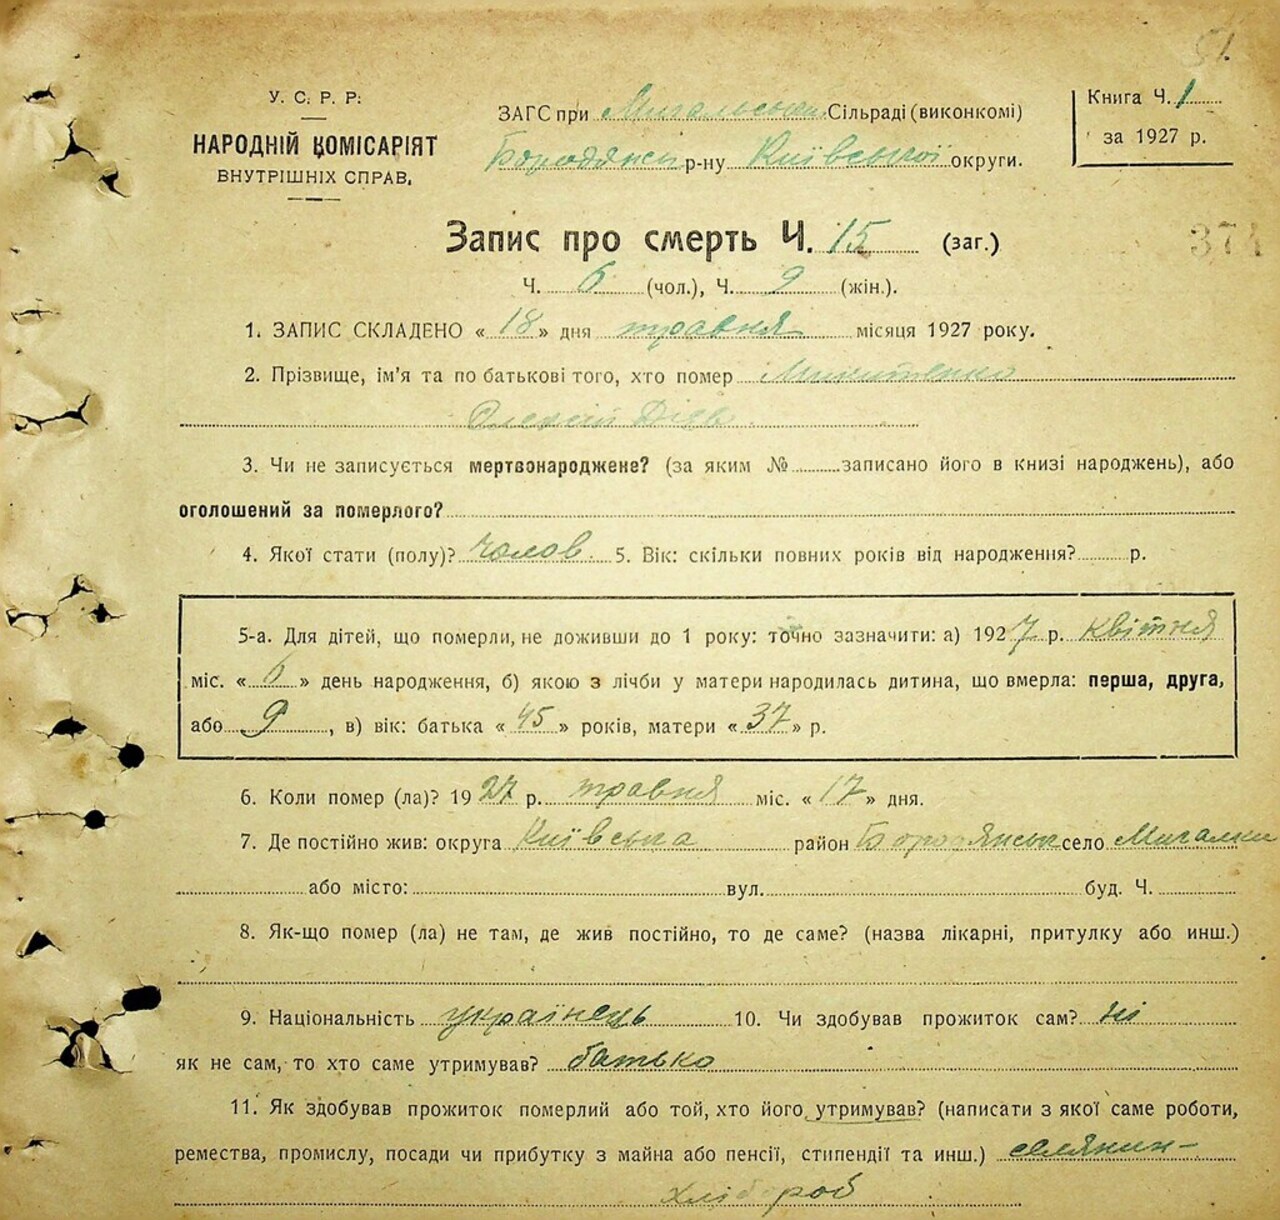 51.
У. С. Р. Р.
НАРОДНІЙ КОМІСАРІЯТ
ВНУТРІШНІХ СПРАВ.
ЗАГС при Мигальській Сільраді (виконкомі)
Бородянськ р-ну Київської округи.
Книга Ч. 1
за 1927 р.
Запис про смерть Ч. 15 (заг.)
374
Ч. 6 (чол.), Ч. 9 (жін.).
1. ЗАПИС СКЛАДЕНО « 18 » дня травня місяця 1927 року.
2. Прізвище, ім'я та по батькові того, хто помер Микитенко
Олексій
3. Чи не записується мертвонароджене? (за яким № записано його в книзі народжень), або
оголошений за померлого?
4. Якої стати (полу)? чолов. 5. Вік: скільки повних років від народження? р.
5-а. Для дітей, що померли, не доживши до 1 року: точно зазначити: а) 1927 р. квітня
міс. « 6 » день народження, б) якою з лічби у матери народилась дитина, що вмерла: перша, друга,
або 9, в) вік: батька « 45 » років, матери « 37 » р.
6. Коли помер (ла)? 1927 р. травня міс. « 17 » дня.
7. Де постійно жив: округа Київська район Бородянськ село Мигалки
або місто: вул. буд. Ч.
8. Як-що помер (ла) не там, де жив постійно, то де саме? (назва лікарні, притулку або инш.)
9. Національність українець 10. Чи здобував прожиток сам? ні
як не сам, то хто саме утримував? батько
11. Як здобував прожиток померлий або той, хто його утримував? (написати з якої саме роботи,
ремества, промислу, посади чи прибутку з майна або пенсії, стипендії та инш.) селянин-
хлібороб